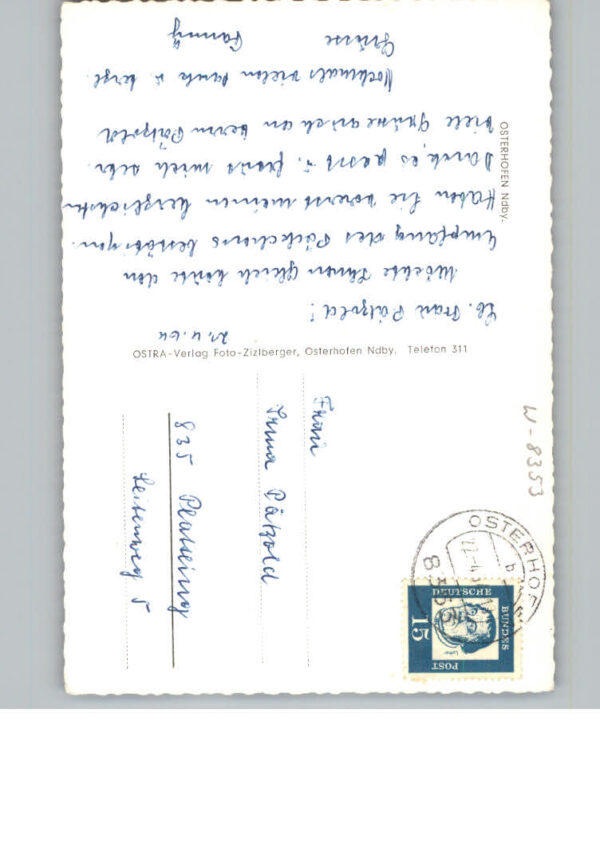 21.4.64
Lb. Frau Pätzold!
Möchte Ihnen gleich heute den
Empfang des Päckchens bestätigen.
Haben Sie vorerst meinen herzlichsten
Dank, es passt u. freut mich sehr.
Viele Grüsse auch an Herrn Pätzold
Nochmals vielen Dank u. herzl.
Grüsse
Fanny
OSTERHOFEN Ndby.
OSTRA-Verlag Foto-Zizlberger, Osterhofen Ndby. Telefon 311
Frau
Irma Pätzold
835 Plattling
Leitenweg 5
W-8353
OSTERHOF
8353
b
DEUTSCHE
BUNDES
POST
15
Luther